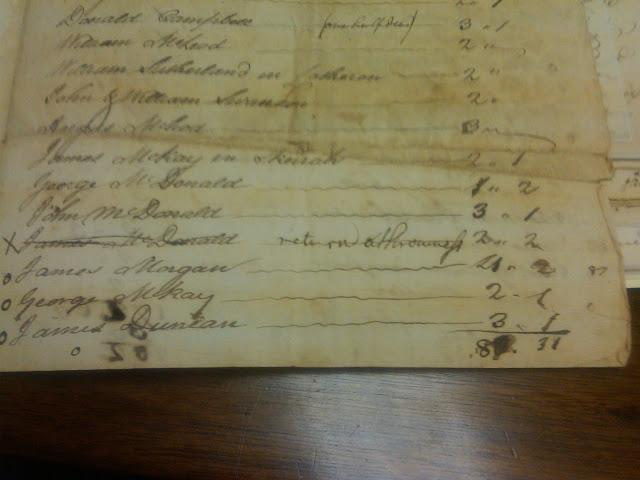 Donald Campbell (one half dead) 3 " 1
William McLeod 2 "
William Sutherland in Latheron 2 "
John & William Sutherland 2 "
Angus McLeod 3 "
James McKay in Skerray 2 " 1
George McDonald 1 " 2
John McDonald 3 " 1
X James McDonald return at Thrumster 2 " 2
o James Morgan 4 " 2
o George McKay 2 - 1
o James Duncan 3 - 1
o 31